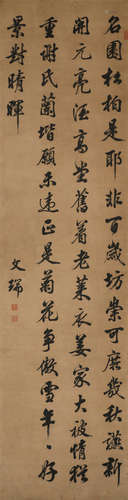 名園松柏是耶非百歲坊榮可歲秋讌新
開元亮酒高堂舊着老萊衣姜家大被情猶
重謝氏蘭堦願未違正是菊花爭傲雪年年好
景對晴暉
文瑞